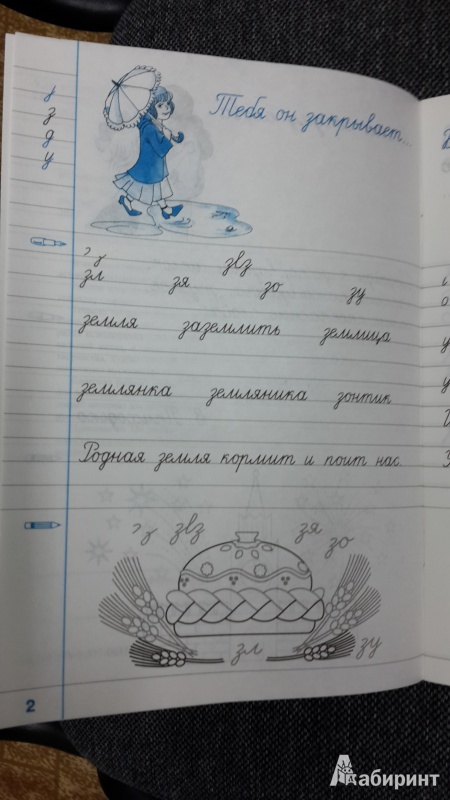 Тебя он закрывает...
з
д
у
звз
зл зя зо зу
земля заземлить землица
землянка земляника зонтик
Родная земля кормит и поит нас.
звз зя
зо
зл зу
2
Лабиринт